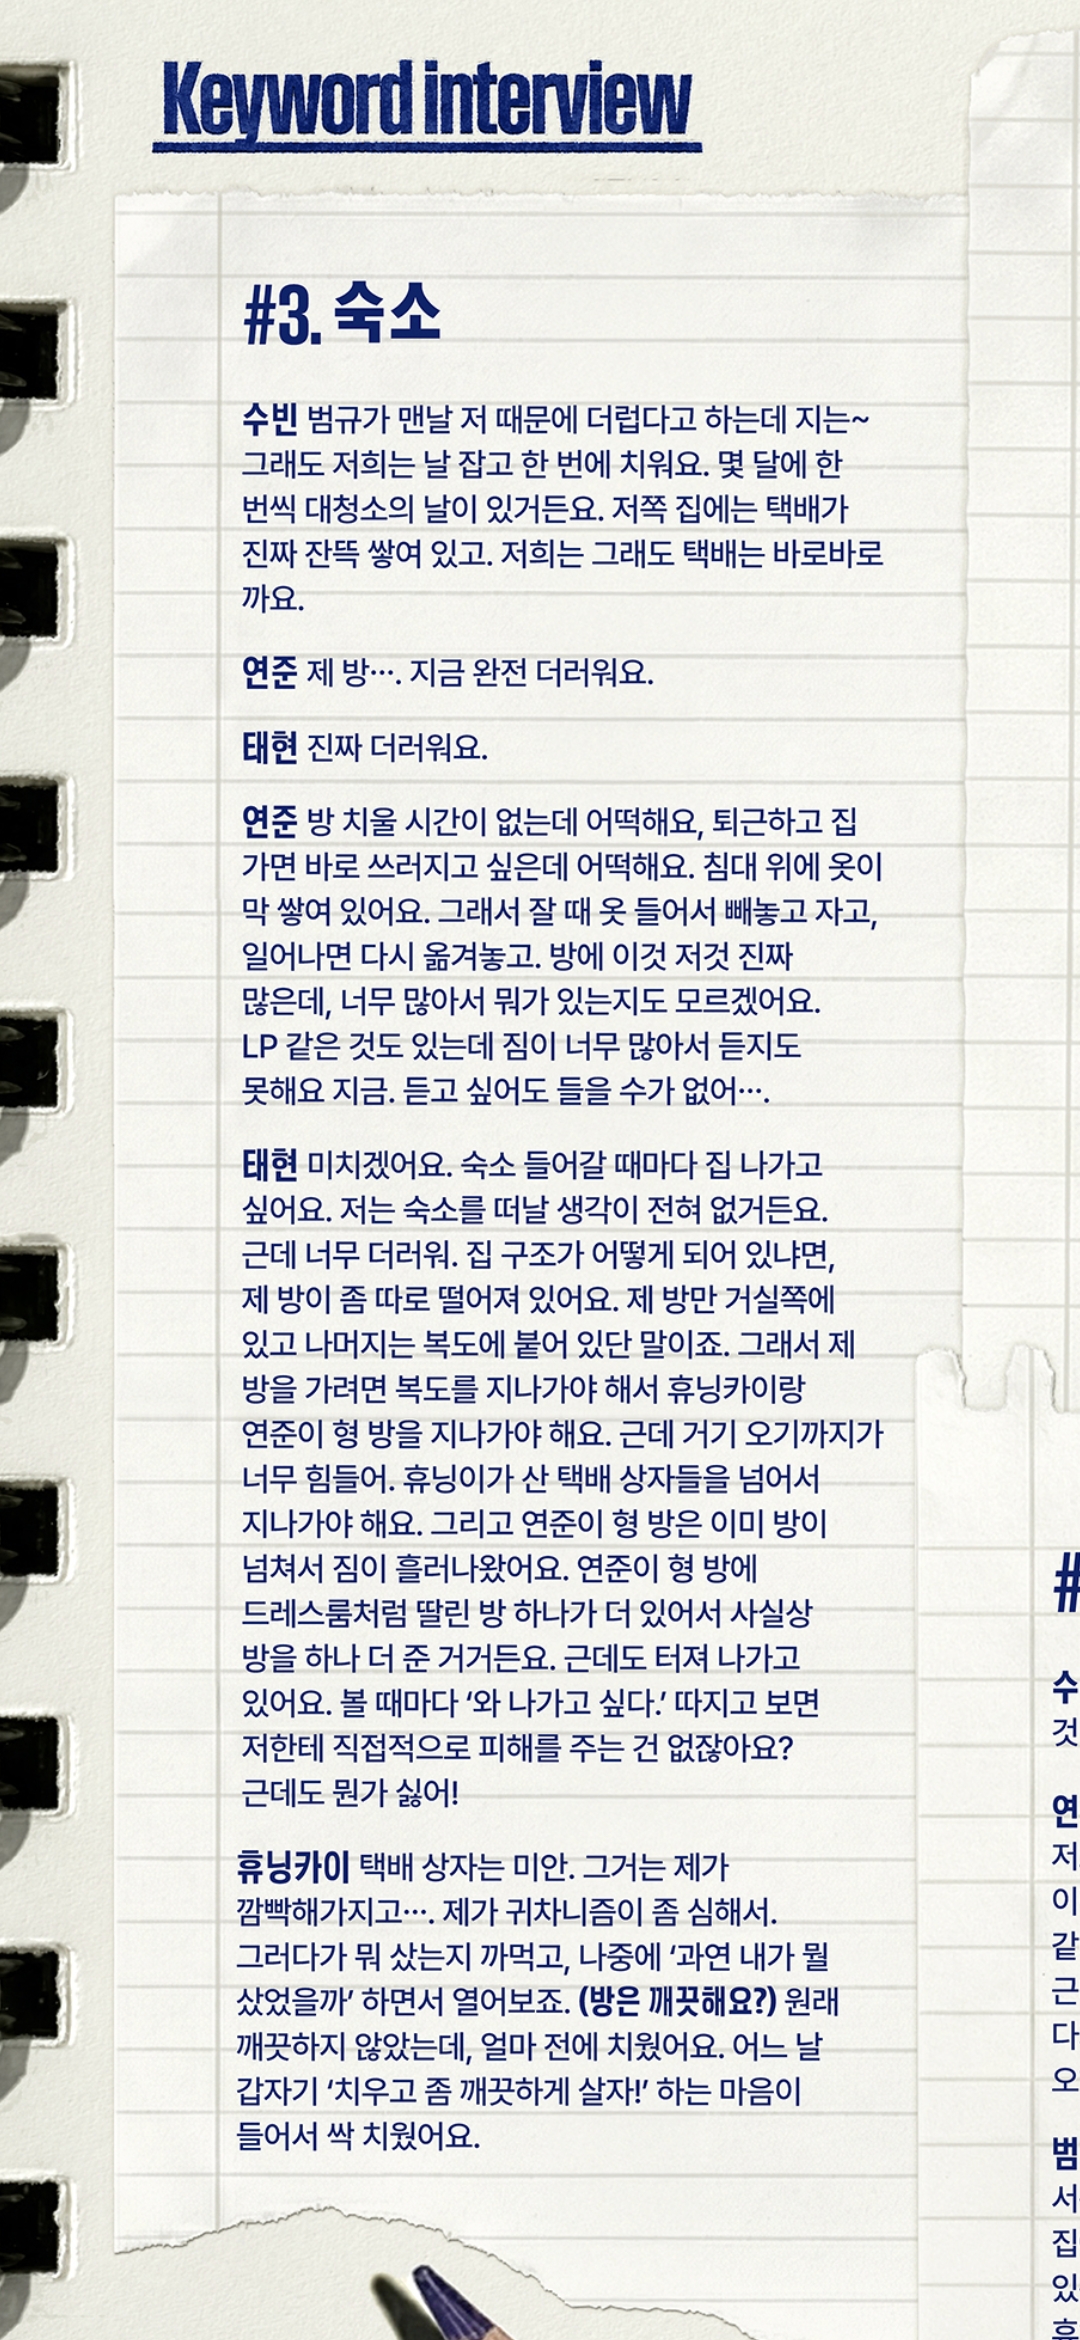 Keyword interview
#3. 숙소
수빈 범규가 맨날 저 때문에 더럽다고 하는데 지는~
그래도 저희는 날 잡고 한 번에 치워요. 몇 달에 한
번씩 대청소의 날이 있거든요. 저쪽 집에는 택배가
진짜 잔뜩 쌓여 있고. 저희는 그래도 택배는 바로바로
까요.
연준 제 방…. 지금 완전 더러워요.
태현 진짜 더러워요.
연준 방 치울 시간이 없는데 어떡해요, 퇴근하고 집
가면 바로 쓰러지고 싶은데 어떡해요. 침대 위에 옷이
막 쌓여 있어요. 그래서 잘 때 옷 들어서 빼놓고 자고,
일어나면 다시 옮겨놓고. 방에 이것 저것 진짜
많은데, 너무 많아서 뭐가 있는지도 모르겠어요.
LP 같은 것도 있는데 짐이 너무 많아서 듣지도
못해요 지금. 듣고 싶어도 들을 수가 없어….
태현 미치겠어요. 숙소 들어갈 때마다 집 나가고
싶어요. 저는 숙소를 떠날 생각이 전혀 없거든요.
근데 너무 더러워. 집 구조가 어떻게 되어 있냐면,
제 방이 좀 따로 떨어져 있어요. 제 방만 거실쪽에
있고 나머지는 복도에 붙어 있단 말이죠. 그래서 제
방을 가려면 복도를 지나가야 해서 휴닝카이랑
연준이 형 방을 지나가야 해요. 근데 거기 오기까지가
너무 힘들어. 휴닝이가 산 택배 상자들을 넘어서
지나가야 해요. 그리고 연준이 형 방은 이미 방이
넘쳐서 짐이 흘러나왔어요. 연준이 형 방에
드레스룸처럼 딸린 방 하나가 더 있어서 사실상
방을 하나 더 준 거거든요. 근데도 터져 나가고
있어요. 볼 때마다 ‘와 나가고 싶다.’ 따지고 보면
저한테 직접적으로 피해를 주는 건 없잖아요?
근데도 뭔가 싫어!
휴닝카이 택배 상자는 미안. 그거는 제가
깜빡해가지고…. 제가 귀차니즘이 좀 심해서.
그러다가 뭐 샀는지 까먹고, 나중에 ‘과연 내가 뭘
샀었을까’ 하면서 열어보죠. (방은 깨끗해요?) 원래
깨끗하지 않았는데, 얼마 전에 치웠어요. 어느 날
갑자기 ‘치우고 좀 깨끗하게 살자!’ 하는 마음이
들어서 싹 치웠어요.
#
수
것
연
저
이
같
근
다
오
범
서
집
있